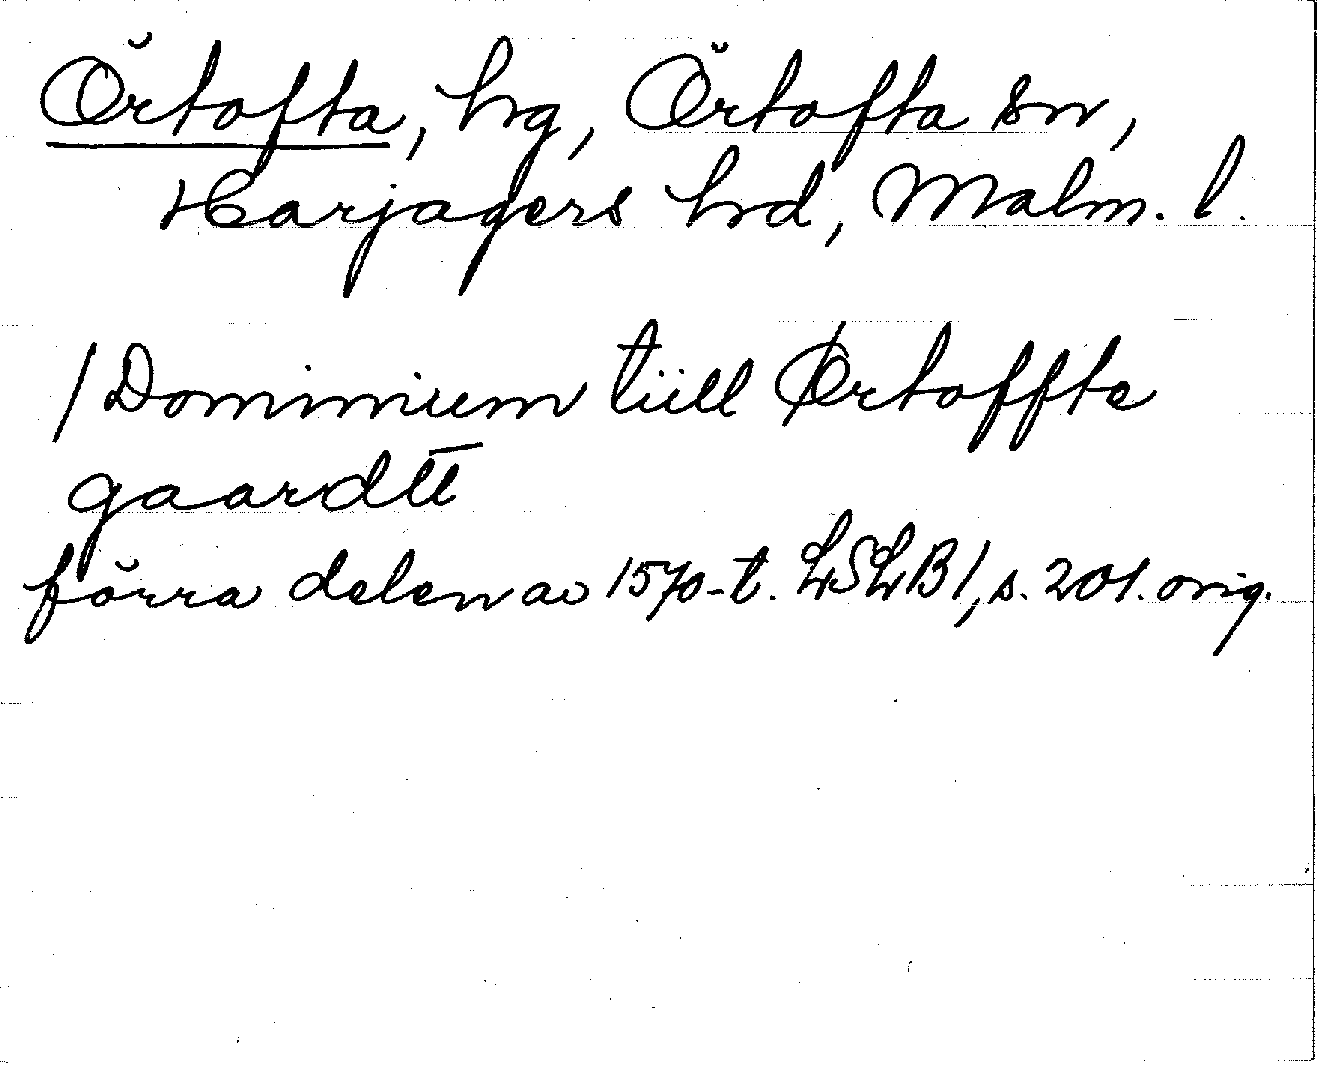 Örtofta, hg, Örtofta sn,
Harjagers hd, Malm. l.
/Dominium tiill Ørtoffte
gaardtt
förra delen av 1570-t. LSLB1, s. 201. orig.